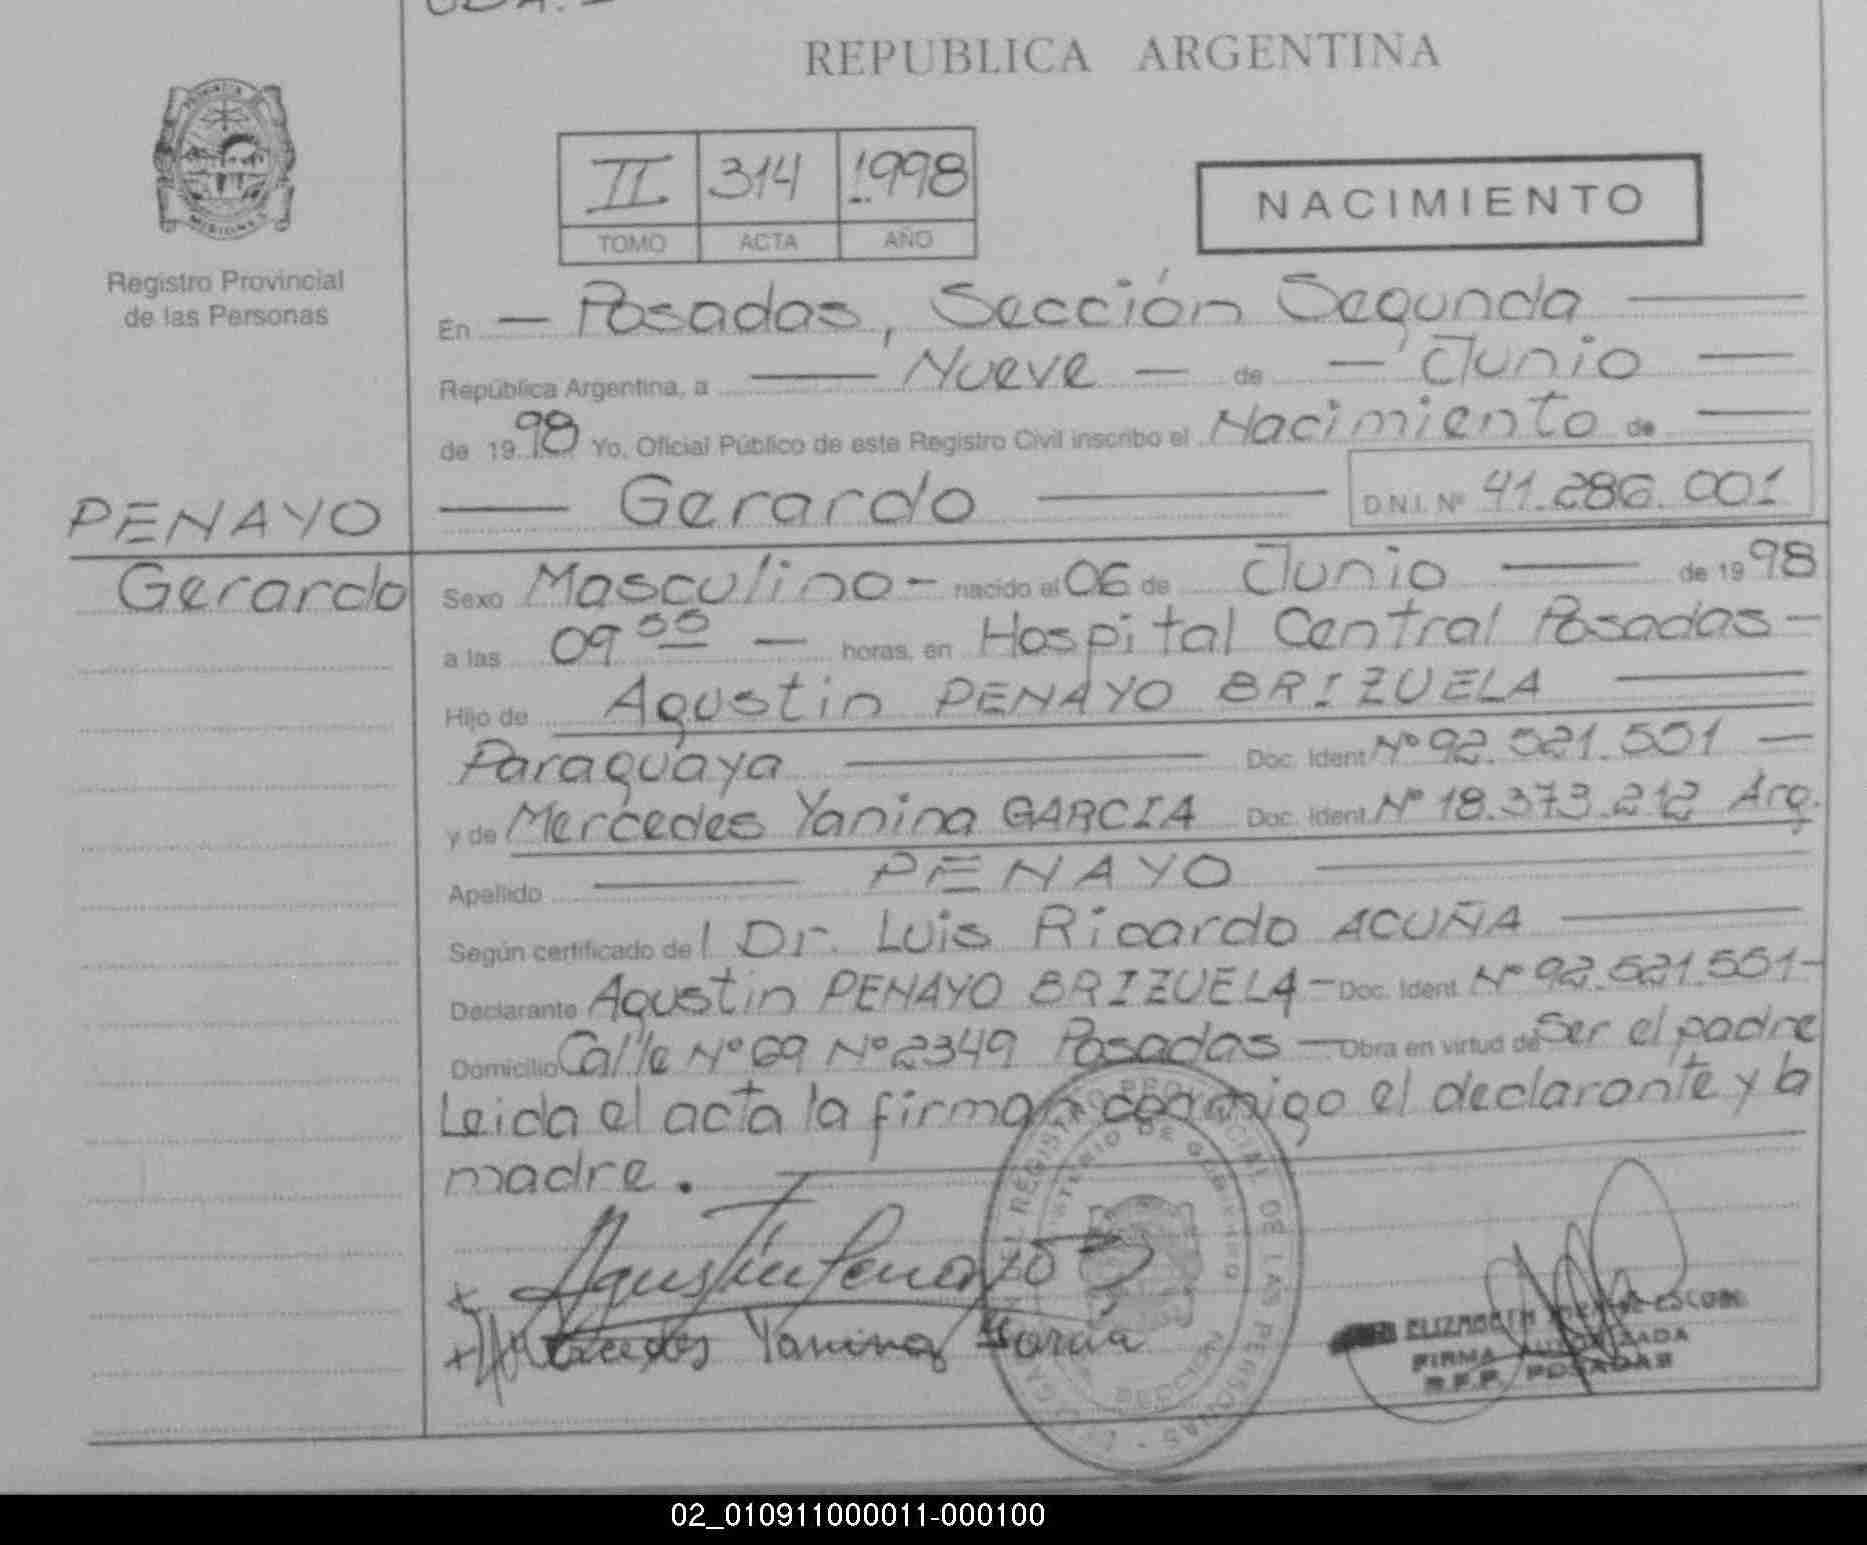 REPUBLICA ARGENTINA
PROVINCIA
MISIONES
Registro Provincial
de las Personas
II 314 1998
TOMO ACTA AÑO
NACIMIENTO
En — Posadas, Sección Segunda —
República Argentina, a — Nueve — de — Junio —
de 1998 Yo, Oficial Público de este Registro Civil inscribo el Nacimiento de —
PENAYO — Gerardo — D.N.I. Nº 41.286.001
Gerardo Sexo Masculino - nacido el 06 de Junio — de 1998
a las 09 55 — horas, en Hospital Central Posadas -
Hijo de Agustin PENAYO BRIZUELA —
Paraguaya — Doc. Ident Nº 92.521.551 —
y de Mercedes Yanina GARCIA Doc. Ident. Nº 18.373.212 Arg.
Apellido — PENAYO —
Según certificado del Dr. Luis Ricardo ACUÑA —
Declarante Agustin PENAYO BRIZUELA - Doc. Ident. Nº 92.521.551 -
Domicilio Calle Nº 69 Nº 2349 Posadas — Obra en virtud de Ser el padre
Leida el acta la firman conmigo el declarante y la
madre. —
x Agustin Penayo B
x Mercedes Yanina Garcia
REGISTRO PROVINCIAL DE LAS PERSONAS
MINISTERIO DE GOBIERNO
FIRMA AUTORIZADA
POSADAS
02_010911000011-000100